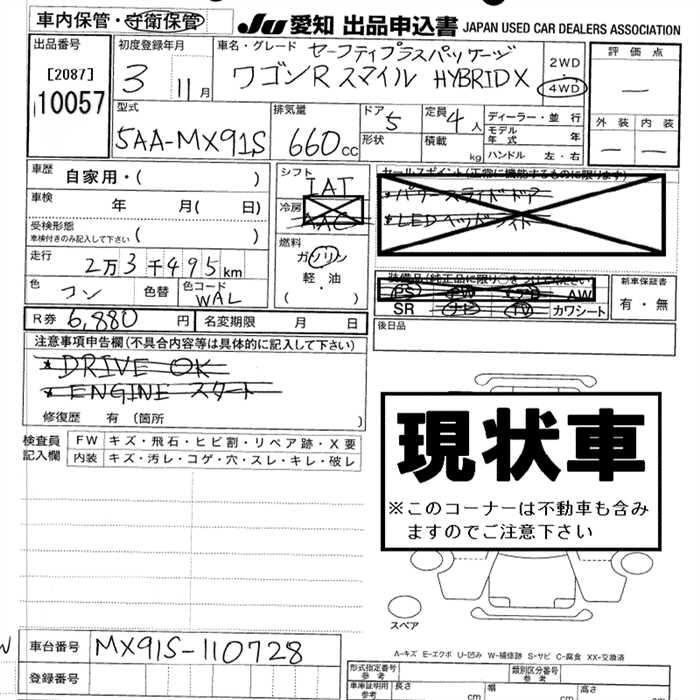 車内保管・守衛保管
JU 愛知 出品申込書 JAPAN USED CAR DEALERS ASSOCIATION
出品番号
[2087]
10057
初度登録年月
3 11月
車名・グレード セーフティプラスパッケージ
ワゴンR スマイル HYBRID X
2WD
・
4WD
評価点
—
外装 内装
— —
型式
5AA-MX91S
排気量
660cc
ドア 5
形状
定員 4人
積載 kg
ディーラー・並行
モデル年式 年
ハンドル 左・右
車歴 自家用・( )
車検 年 月(日)
受検形態
車検付きのみ記入して下さい ( )
走行 2万3千495km
色 コン 色替 色コード WAL
シフト IAT
冷房 AAC
燃料
ガソリン
軽・油
( )
セールスポイント(正常に機能するものに限ります)
*パワースライドドア
*LEDヘッドライト
装備品(純正品に限り○をつけてください)
PS PW AW
SR ナビ TV カワシート
新車保証書
有・無
R券 6,880円 名変期限 月 日
後日品
注意事項申告欄(不具合内容等は具体的に記入して下さい)
*DRIVE OK
*ENGINE スタート
修復歴 有〔箇所
検査員
記入欄
FW キズ・飛石・ヒビ割・リペア跡・X要
内装 キズ・汚レ・コゲ・穴・スレ・キレ・破レ
現状車
※このコーナーは不動車も含み
ますのでご注意下さい
スペア
A-キズ E-エクボ U-凹み W-補修跡 S-サビ C-腐食 XX-交換済
車台番号 MX91S-110728
登録番号
形式指定番号
参考
類別区分番号
参考
車庫証明用
参考
長さ cm 幅 cm 高さ cm